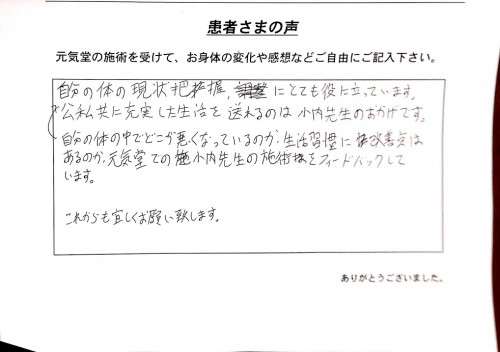 患者さまの声
元気堂の施術を受けて、お身体の変化や感想などご自由にご記入下さい。
自分の体の現状把握、調整にとても役に立っています。
公私共に充実した生活を送れるのは小内先生のおかげです。
自分の体の中でどこが悪くなっているのか、生活習慣に改善点は
あるのか、元気堂での小内先生の施術をフィードバックして
います。
これからも宜しくお願い致します。
ありがとうございました。